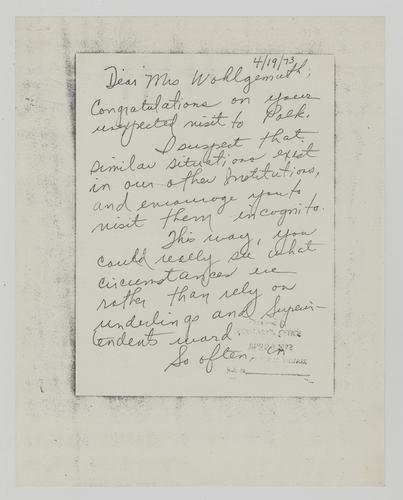 4/19/73
Dear Mrs Wohlgemuth;
Congratulations on your
unexpected visit to Polk.
I suspect that
similar situations exist
in our other Institutions,
and encourage you to
visit them incognito.
This way, you
could really see what
circumstances are
rather than rely on
underlings and Superin-
tendents word
So often, on